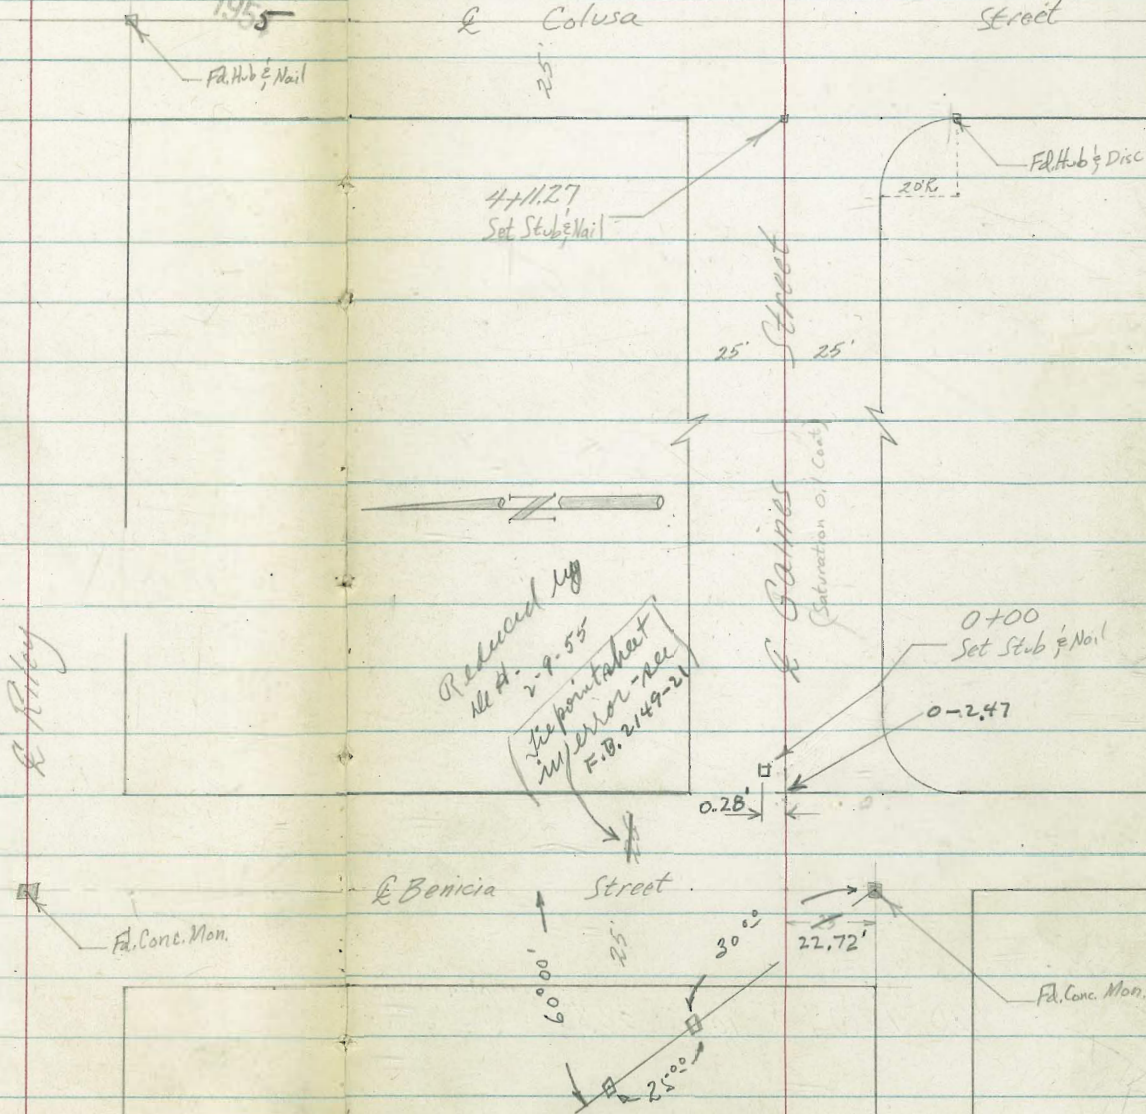 1955
℄ Colusa Street
Fd. Hub & Nail
25'
Fd. Hub & Disc
20' R.
4+11.27
Set Stub & Nail
25' 25'
℄ Gaines Street
(Saturation Oil Coat)
℄ Riley
Reduced
2-9-55
Tiepoint sheet
in error - see
F.B. 2149-21
0+00
Set Stub & Nail
0-2.47
0.28'
25'
℄ Benicia Street
25'
60°00'
30.00
25
22.72'
Fd. Conc. Mon.
Fd. Conc. Mon.
25.00